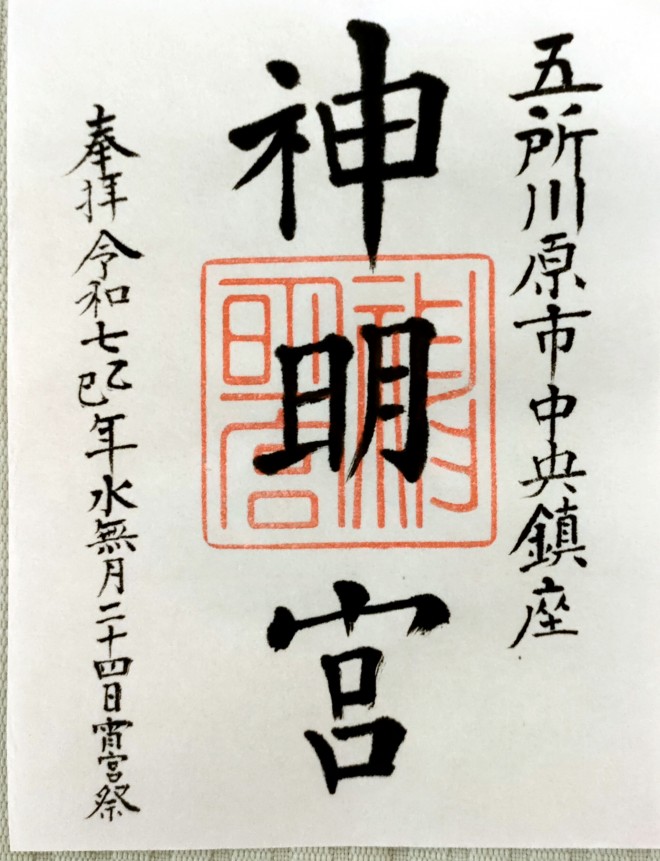 五所川原市中央鎮座
神明宮
奉拝 令和七乙巳年水無月二十四日宵宮祭